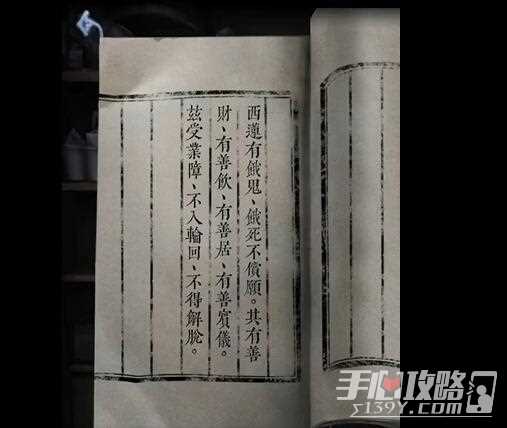 西蓮有餓鬼、餓死不償願。其有善
財、有善飲、有善居、有善賓儀。
茲受業障、不入輪回、不得解脫。
手心攻略
s139y.com